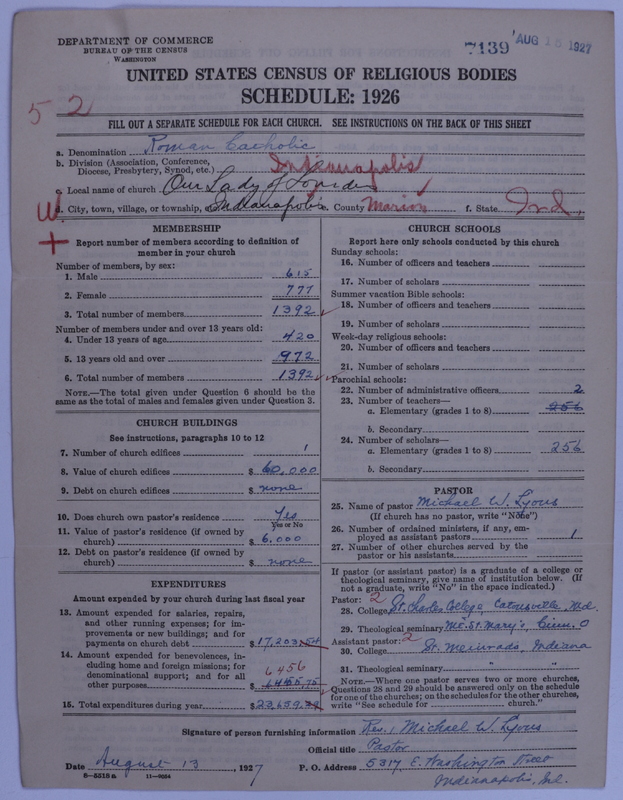 DEPARTMENT OF COMMERCE
BUREAU OF THE CENSUS
WASHINGTON
7139 AUG 15 1927
UNITED STATES CENSUS OF RELIGIOUS BODIES
SCHEDULE: 1926
52
FILL OUT A SEPARATE SCHEDULE FOR EACH CHURCH. SEE INSTRUCTIONS ON THE BACK OF THIS SHEET
a. Denomination Roman Catholic
b. Division (Association, Conference,
Diocese, Presbytery, Synod, etc.) Indianapolis
c. Local name of church Our Lady of Lourdes
d. City, town, village, or township, Indianapolis e. County Marion f. State Ind.
MEMBERSHIP
Report number of members according to definition of
member in your church
Number of members, by sex:
1. Male 615
2. Female 777
3. Total number of members 1392
Number of members under and over 13 years old:
4. Under 13 years of age 420
5. 13 years old and over 972
6. Total number of members 1392
NOTE.—The total given under Question 6 should be
same as the total of males and females given under Question 3.
CHURCH BUILDINGS
See instructions, paragraphs 10 to 12
7. Number of church edifices 1
8. Value of church edifices $ 60,000
9. Debt on church edifices $ none
10. Does church own pastor's residence Yes
Yes or No
11. Value of pastor's residence (if owned by
church) $ 6,000
12. Debt on pastor's residence (if owned by
church) $ none
EXPENDITURES
Amount expended by your church during last fiscal year
13. Amount expended for salaries, repairs,
and other running expenses; for im-
provements or new buildings; and for
payments on church debt $ 17,203.54
14. Amount expended for benevolences, in-
cluding home and foreign missions; for
denominational support; and for all 6456
other purposes $
15. Total expenditures during year $ 23,659
CHURCH SCHOOLS
Report here only schools conducted by this church
Sunday schools:
16. Number of officers and teachers
17. Number of scholars
Summer vacation Bible schools:
18. Number of officers and teachers
19. Number of scholars
Week-day religious schools:
20. Number of officers and teachers
21. Number of scholars
Parochial schools:
22. Number of administrative officers 2
23. Number of teachers—
a. Elementary (grades 1 to 8) 256
b. Secondary
24. Number of scholars—
a. Elementary (grades 1 to 8) 256
b. Secondary
PASTOR
25. Name of pastor Michael W. Lyons
(If church has no pastor, write "None")
26. Number of ordained ministers, if any, em-
ployed as assistant pastors 1
27. Number of other churches served by the
pastor or his assistants
If pastor (or assistant pastor) is a graduate of a college or
theological seminary, give name of institution below. (If
not a graduate, write "No" in the space indicated.)
Pastor: 2
28. College St. Charles College, Catonsville, Md.
29. Theological seminary Mt. St. Mary's, Cinn. O
Assistant pastor: 2
30. College St. Meinrads, Indiana
31. Theological seminary " "
NOTE.—Where one pastor serves two or more churches,
Questions 28 and 29 should be answered only on the schedule
for one of the churches; on the schedules for the other churches,
write "See schedule for church."
Signature of person furnishing information Rev. Michael W. Lyons
Official title Pastor
Date August 13, 1927 P. O. Address 5317 E. Washington Street
8—5518a 11—9034 Indianapolis, Ind.